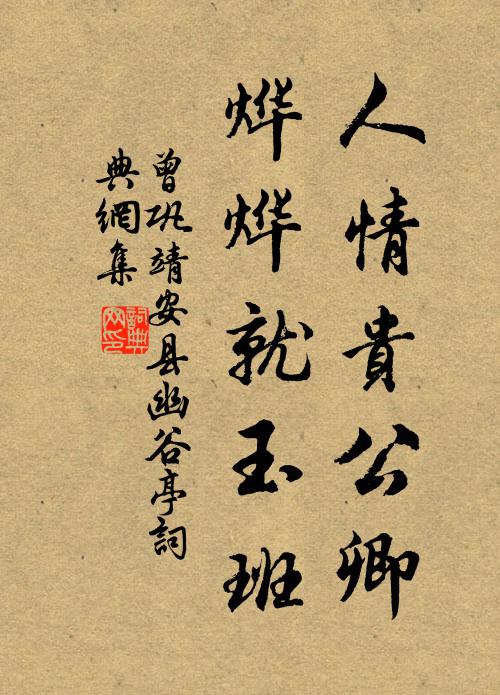 人情貴公卿
烨烨就玉班
曾巩靖安县幽谷亭詞
典網集
詞典
网印